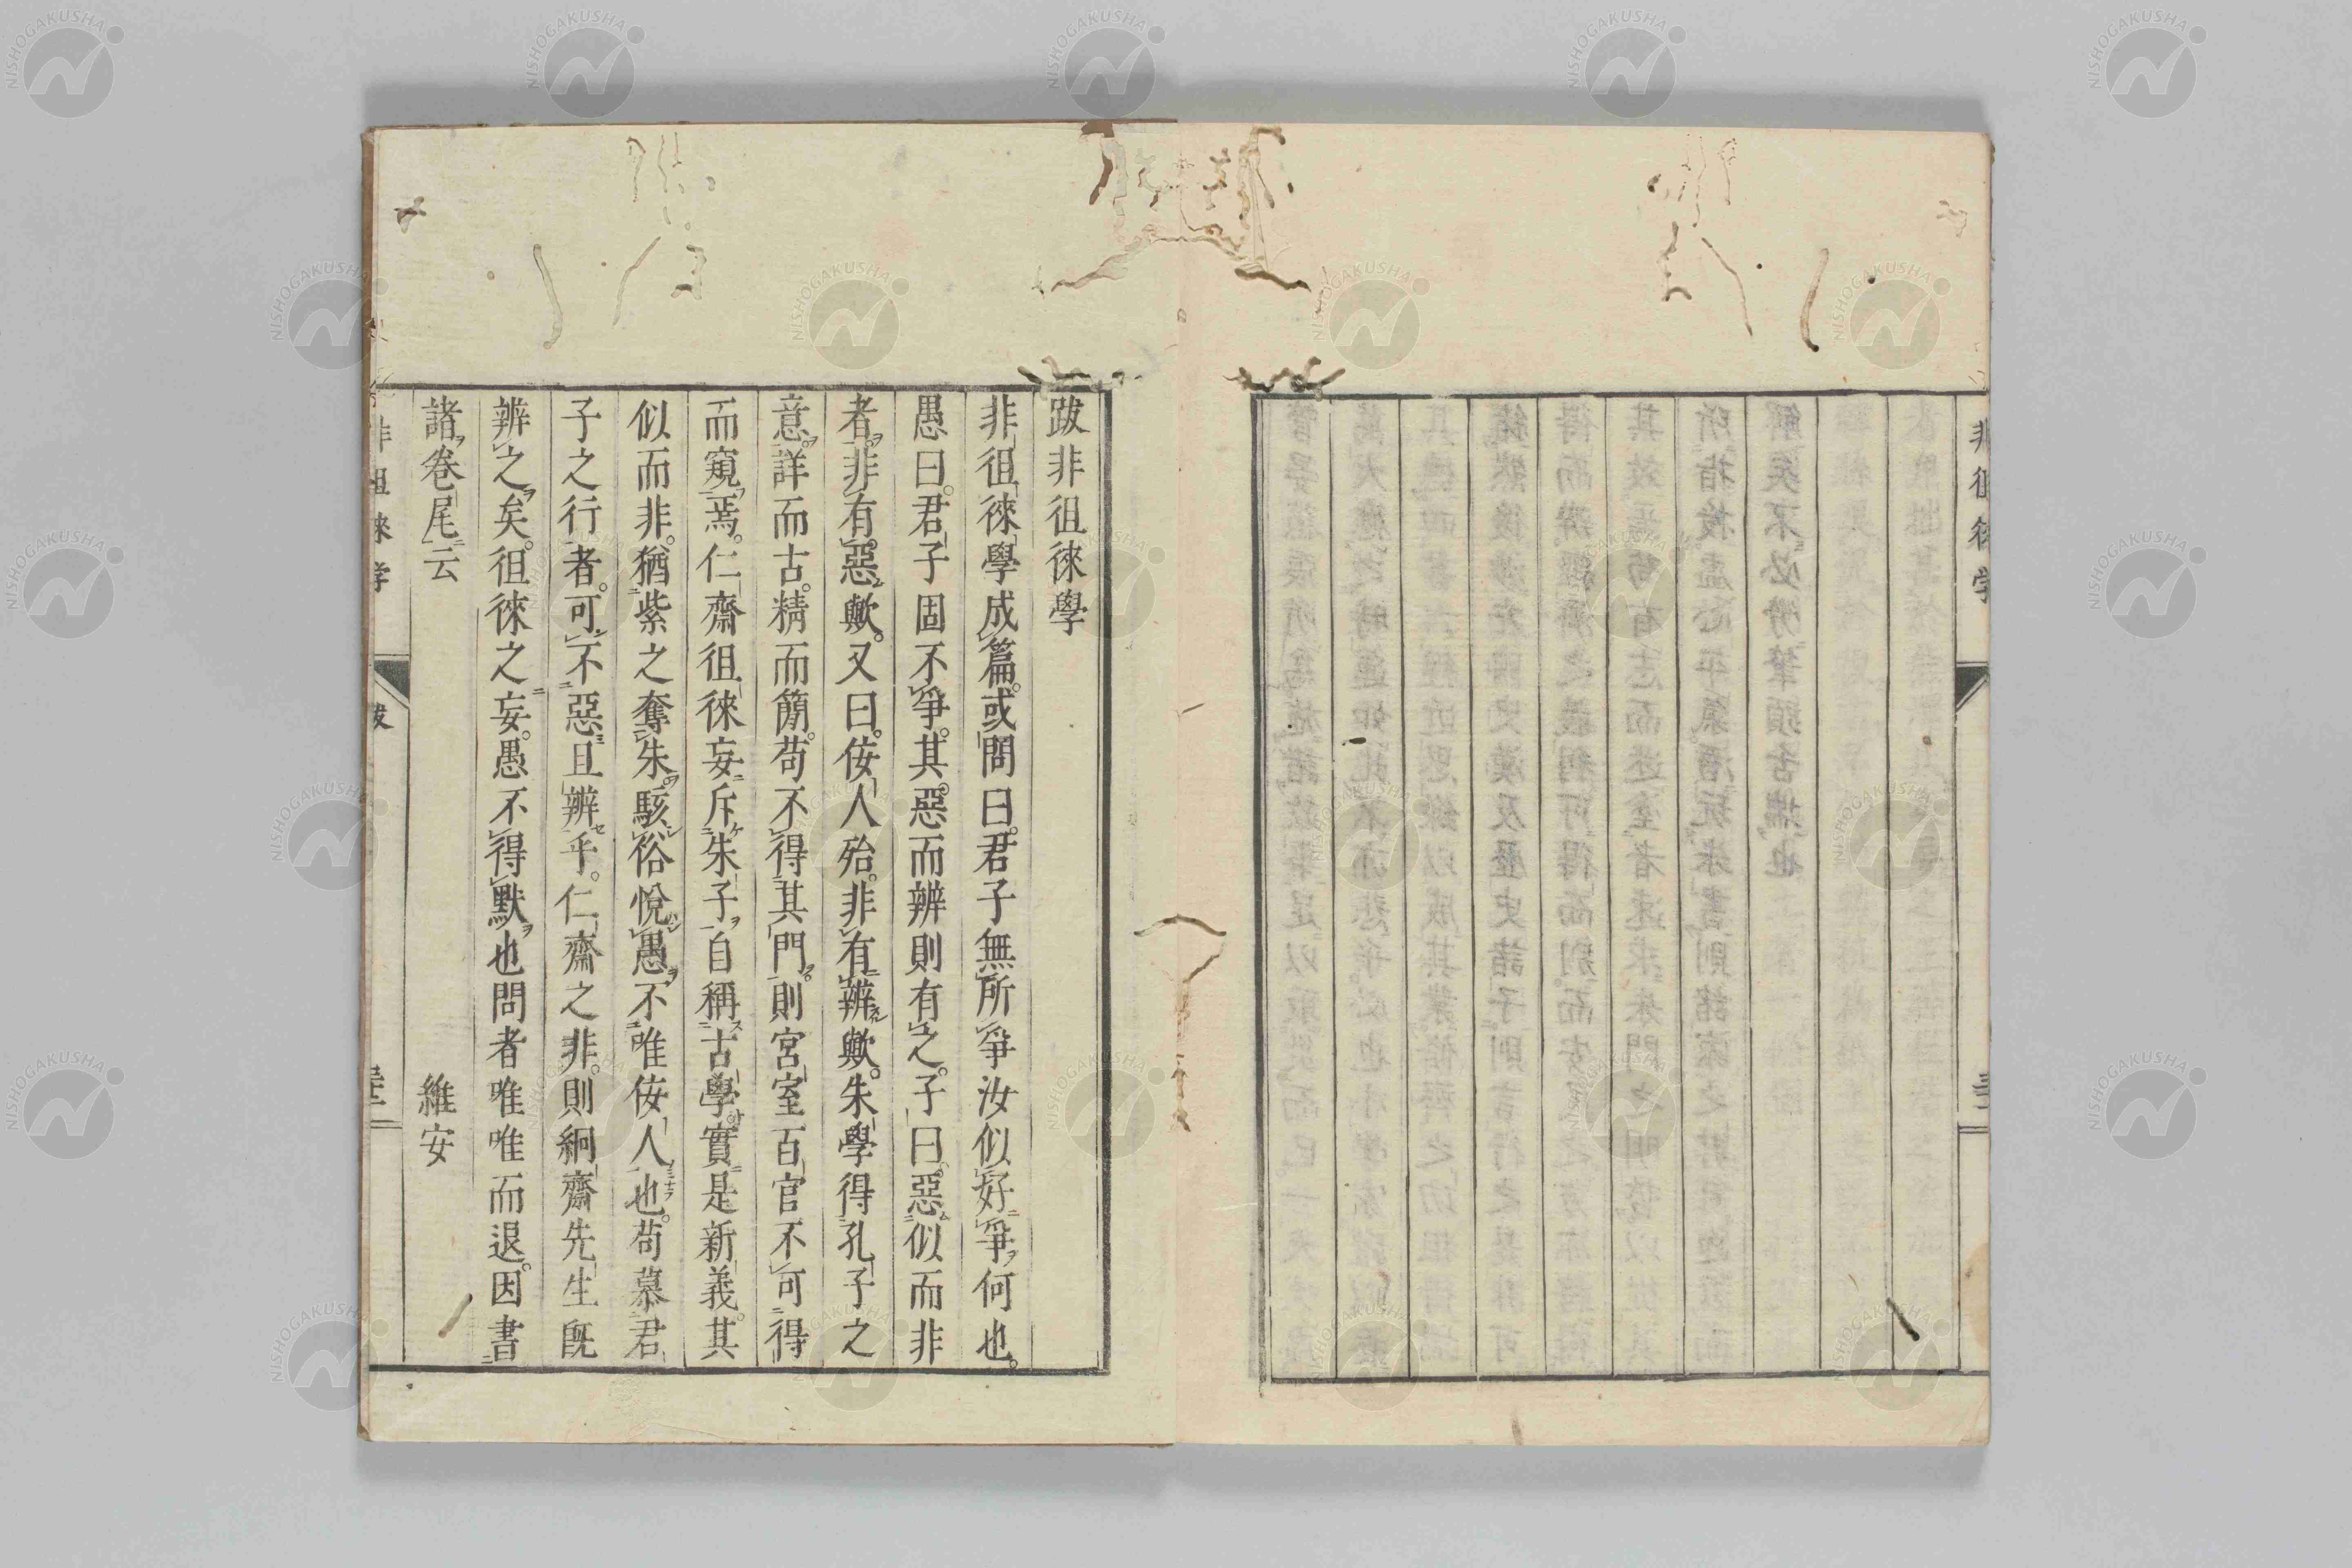 跋非徂徠學
非徂徠學成篇。或問曰。君子無所爭汝似好爭何也。
愚曰。君子固不爭。其惡而辨則有之。子曰。惡似而非
者。非有惡歟。又曰。侫人殆。非有辨歟。朱學得孔子之
意。詳而古。精而簡。苟不得其門。則宮室百官不可得
而窺焉。仁齋徂徠妄斥朱子自稱古學實是新義。其
似而非。猶紫之奪朱。駭俗悅愚不唯侫人也。苟慕君
子之行者。可不惡且辨乎。仁齋之非。則絅齋先生旣
辨之矣。徂徠之妄。愚不得默也問者唯唯而退。因書
諸卷尾云
維安